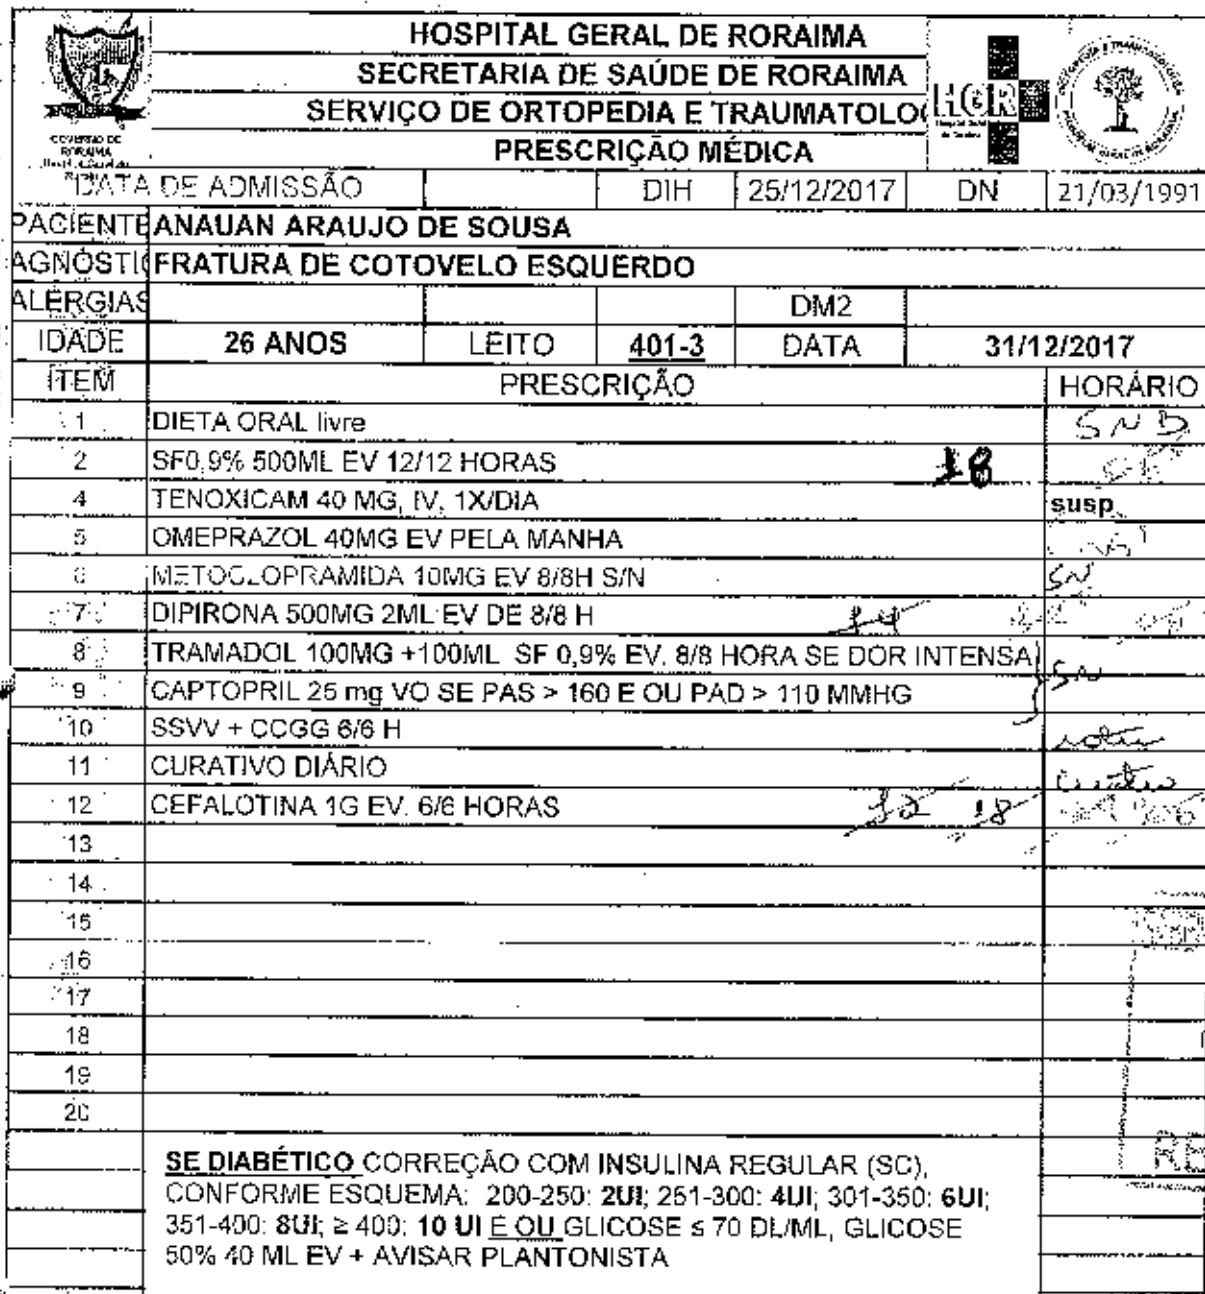 HOSPITAL GERAL DE RORAIMA
SECRETARIA DE SAÚDE DE RORAIMA
SERVIÇO DE ORTOPEDIA E TRAUMATOLO
PRESCRIÇÃO MÉDICA
GOVERNO DE
RORAIMA
HGR
DATA DE ADMISSÃO DIH 25/12/2017 DN 21/03/1991
PACIENTE ANAUAN ARAUJO DE SOUSA
AGNÓSTI FRATURA DE COTOVELO ESQUERDO
ALERGIAS DM2
IDADE 26 ANOS LEITO 401-3 DATA 31/12/2017
ITEM PRESCRIÇÃO HORÁRIO
1 DIETA ORAL livre SND
2 SF0,9% 500ML EV 12/12 HORAS 18
4 TENOXICAM 40 MG, IV, 1X/DIA susp.
5 OMEPRAZOL 40MG EV PELA MANHA
6 METOCLOPRAMIDA 10MG EV 8/8H S/N SN
7 DIPIRONA 500MG 2ML EV DE 8/8 H 14
8 TRAMADOL 100MG +100ML SF 0,9% EV. 8/8 HORA SE DOR INTENSA
9 CAPTOPRIL 25 mg VO SE PAS > 160 E OU PAD > 110 MMHG SN
10 SSVV + CCGG 6/6 H
11 CURATIVO DIÁRIO
12 CEFALOTINA 1G EV. 6/6 HORAS 12 18
13
14
15
16
17
18
19
20
SE DIABÉTICO CORREÇÃO COM INSULINA REGULAR (SC),
CONFORME ESQUEMA: 200-250: 2UI; 251-300: 4UI; 301-350: 6UI;
351-400: 8UI; ≥ 400: 10 UI E OU GLICOSE ≤ 70 DL/ML, GLICOSE
50% 40 ML EV + AVISAR PLANTONISTA